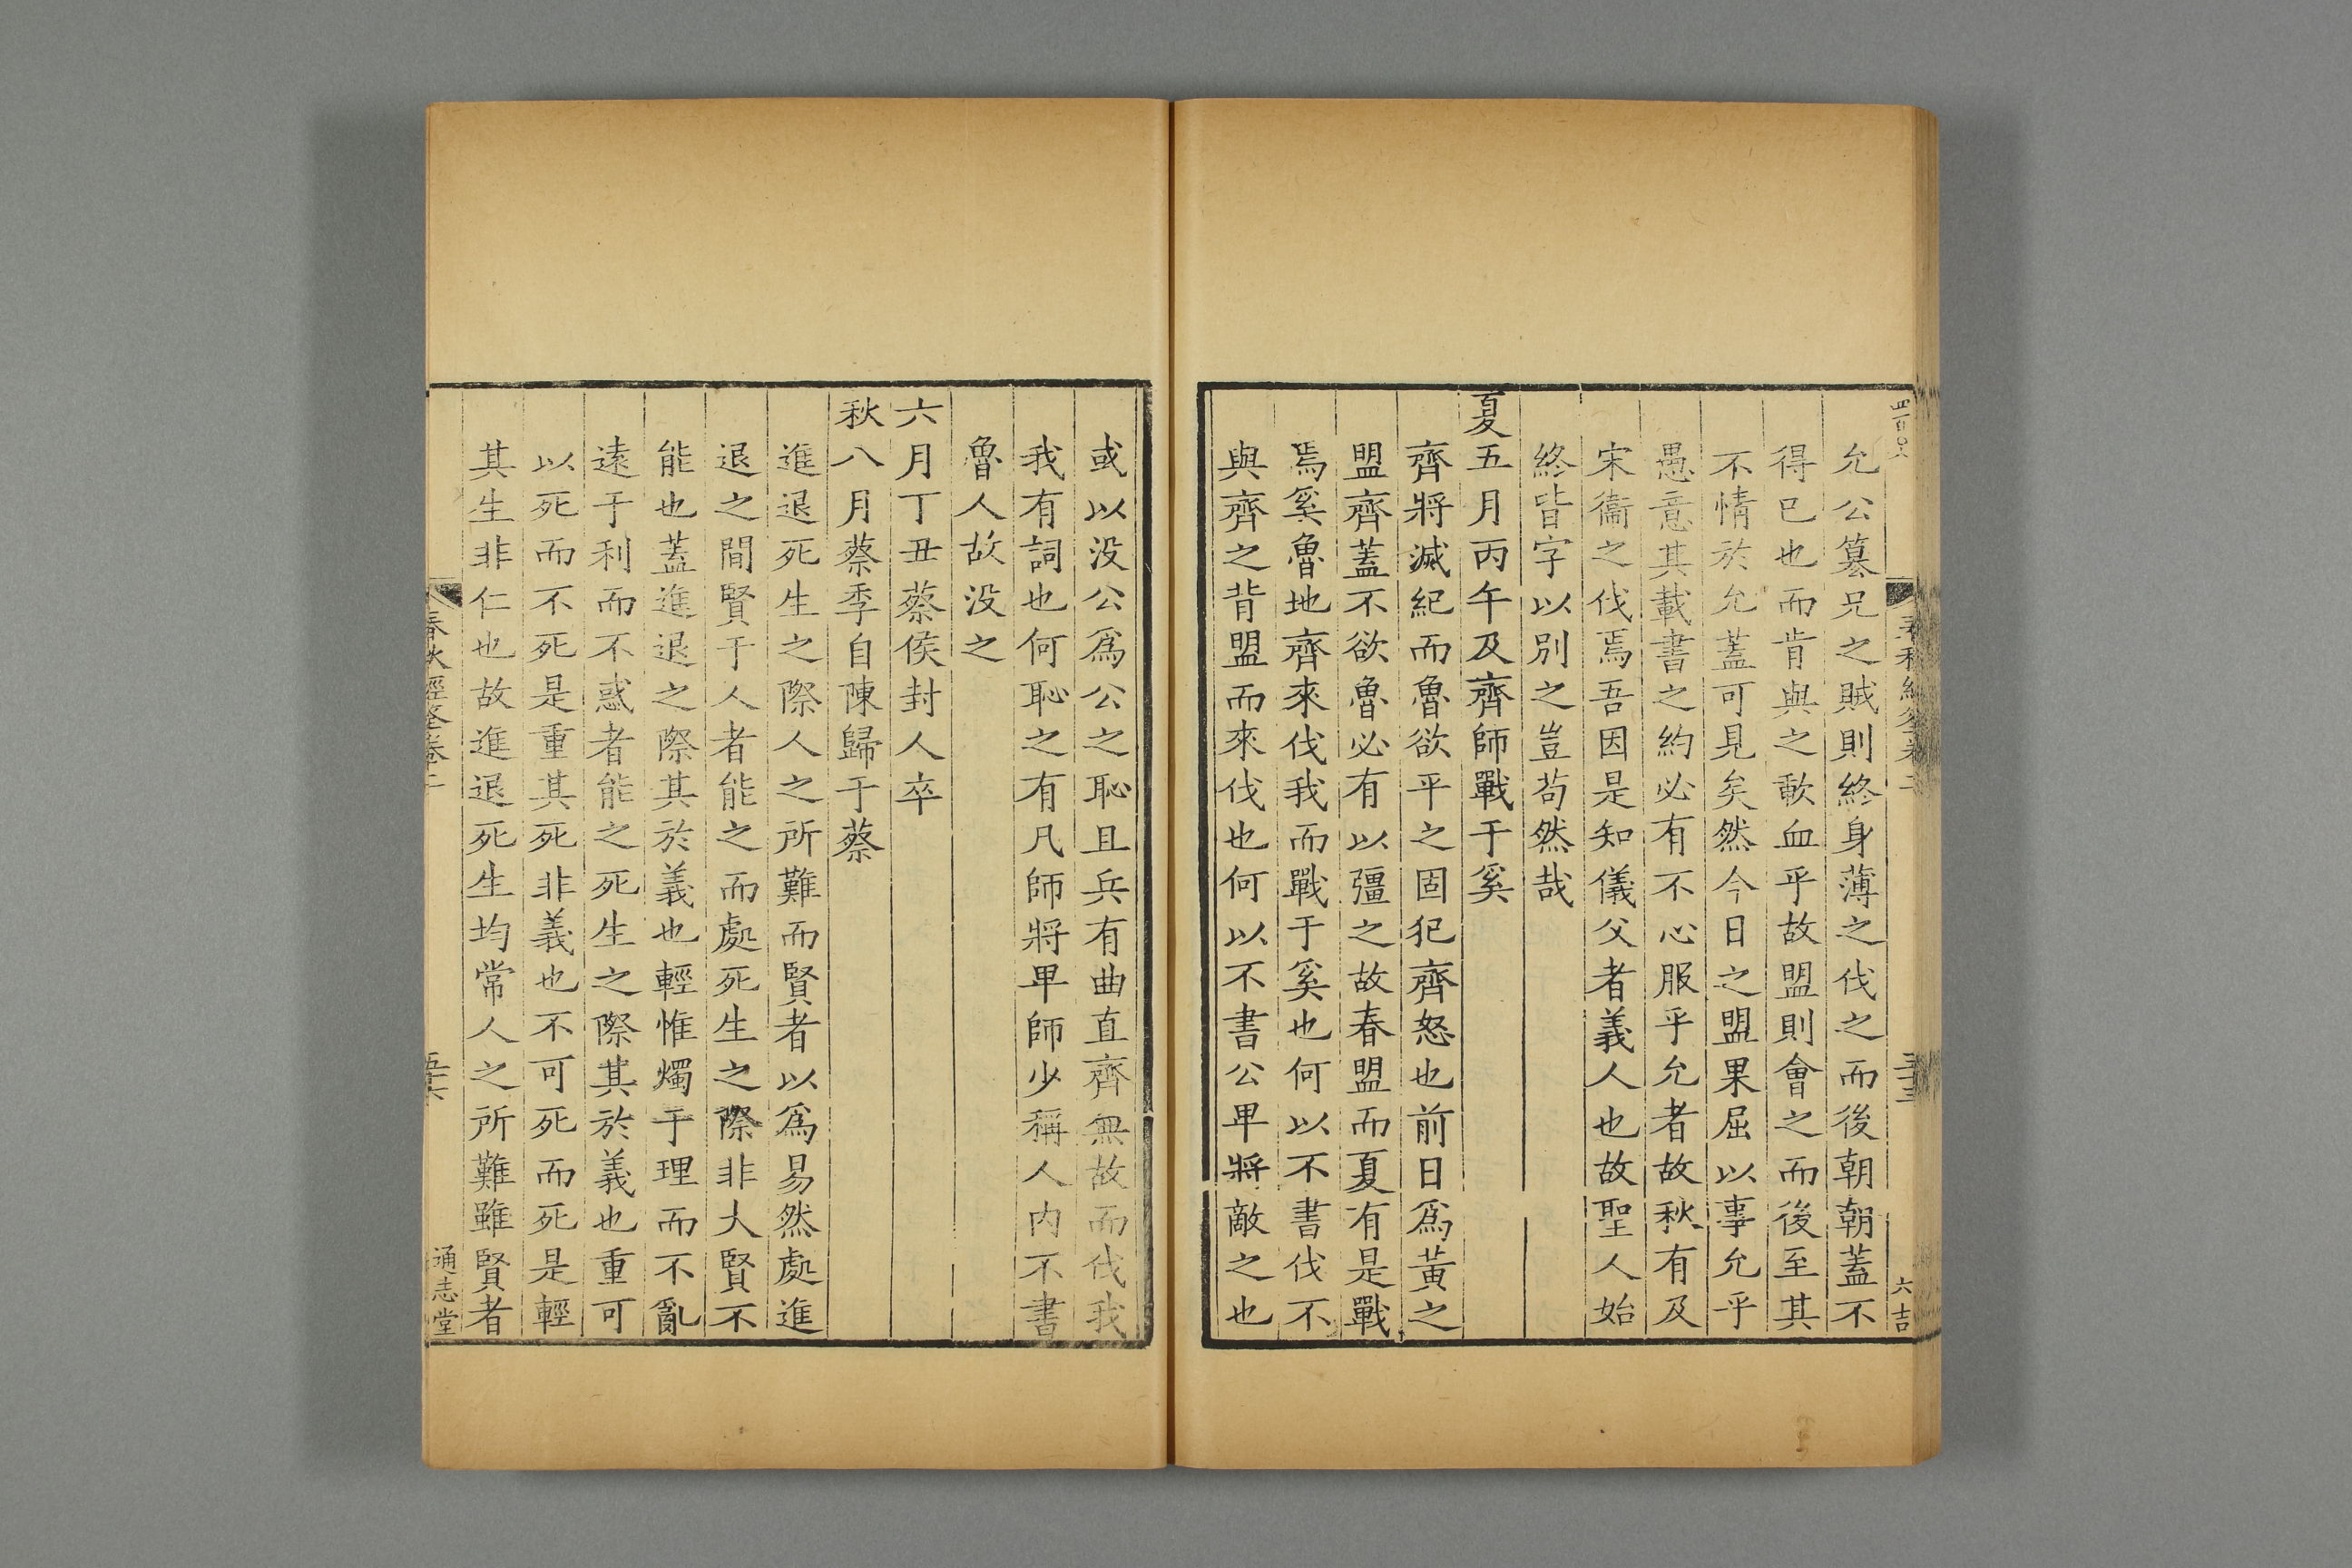 允公簒兄之賊則終身薄之伐之而後朝朝蓋不
得已也而肯與之歃血乎故盟則會之而後至其
不情於允蓋可見矣然今日之盟果屈以事允乎
愚意其載書之約必有不心服乎允者故秋有及
宋衞之伐焉吾因是知儀父者義人也故聖人始
終皆字以別之豈苟然哉
夏五月丙午及齊師戰于奚
齊將滅紀而魯欲平之固犯齊怒也前日爲黃之
盟齊蓋不欲魯必有以彊之故春盟而夏有是戰
焉奚魯地齊來伐我而戰于奚也何以不書伐不
與齊之背盟而來伐也何以不書公卑將敵之也
六吉
或以没公爲公之恥且兵有曲直齊無故而伐我
我有詞也何恥之有凡師將卑師少稱人内不書
魯人故没之
六月丁丑蔡侯封人卒
秋八月蔡季自陳歸于蔡
進退死生之際人之所難而賢者以爲易然處進
退之間賢于人者能之而處死生之際非大賢不
能也蓋進退之際其於義也輕惟燭于理而不亂
遠于利而不惑者能之死生之際其於義也重可
以死而不死是重其死非義也不可死而死是輕
其生非仁也故進退死生均常人之所難雖賢者
春秋經筌卷二
通志堂